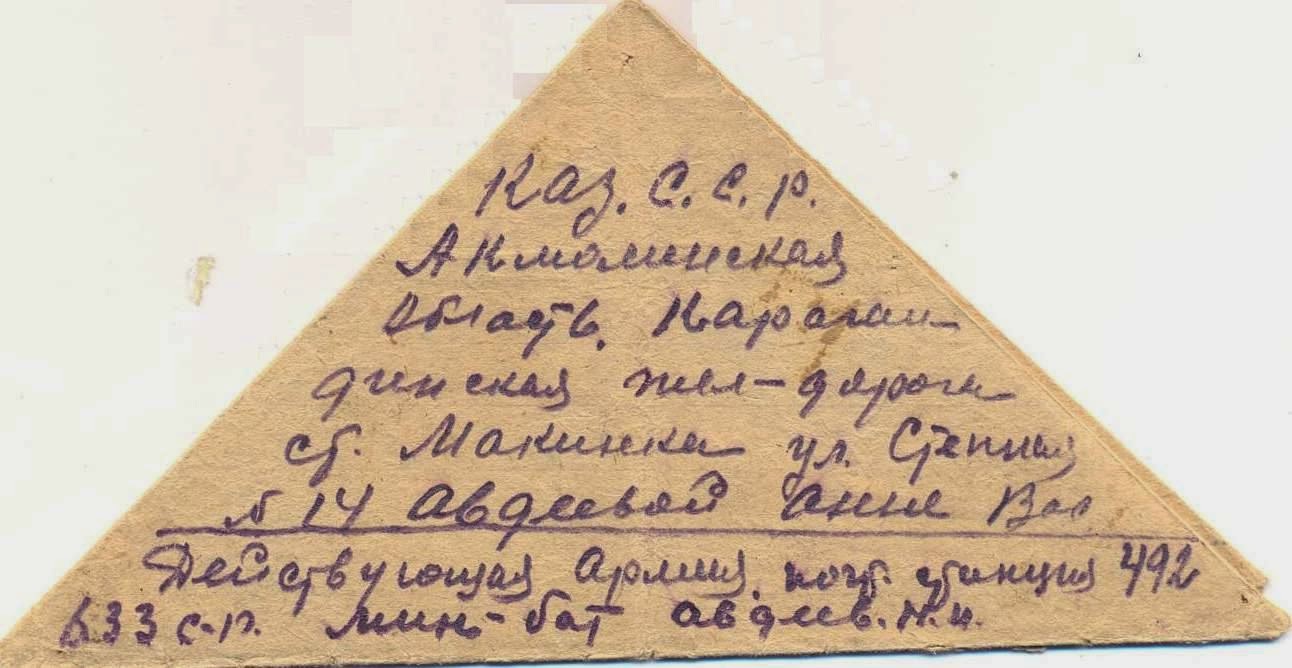 Каз. С. С. р.
Акмолинская
Область. Караган-
динская жел-дорога
ст. Макинка ул. Степная
№ 14 Авдеевой Анне Вас
Действующая Армия, почт. станция 492
633 с-п. мин-бат Авдеев. Н. И.